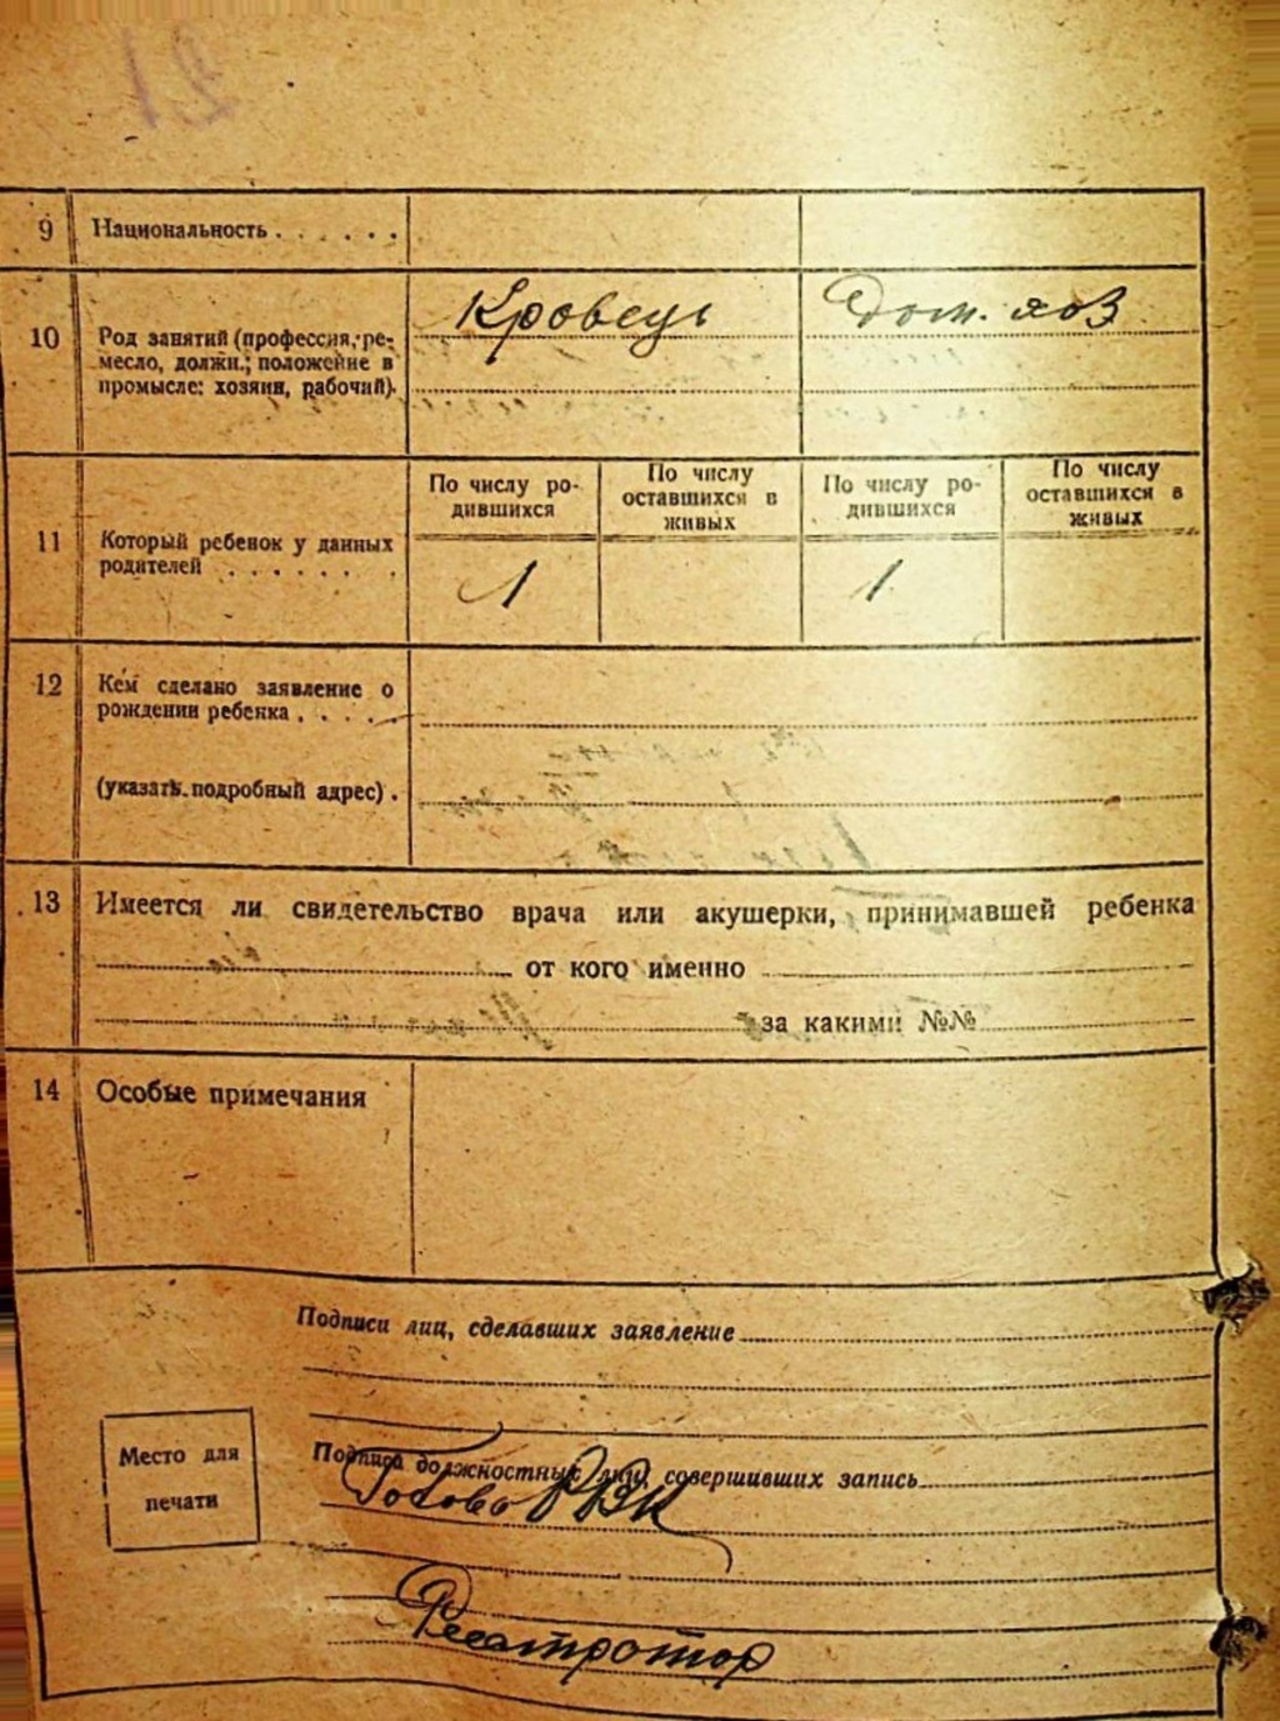 21
9 Национальность . . . . . .
10 Род занятий (профессия, ре-
месло, должн.; положение в
промысле: хозяин, рабочий).
Кровець
Дом. хоз
11 Который ребенок у данных
родителей . . . . . . .
По числу ро-
дившихся
По числу
оставшихся в
живых
По числу ро-
дившихся
По числу
оставшихся в
живых
1
1
12 Кем сделано заявление о
рождении ребенка . . . .
(указать подробный адрес) .
13 Имеется ли свидетельство врача или акушерки, принимавшей ребенка
от кого именно
за какими №№
14 Особые примечания
Подписи лиц, сделавших заявление
Место для
печати
Подписи должностных лиц, совершивших запись
Голова РВК
Реєстратор